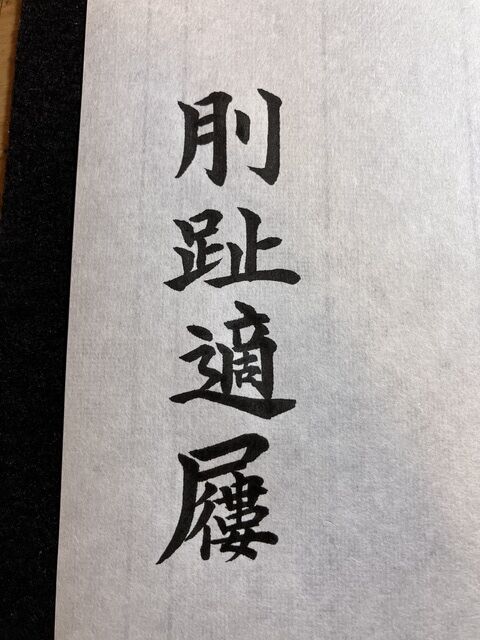 刖趾適屨